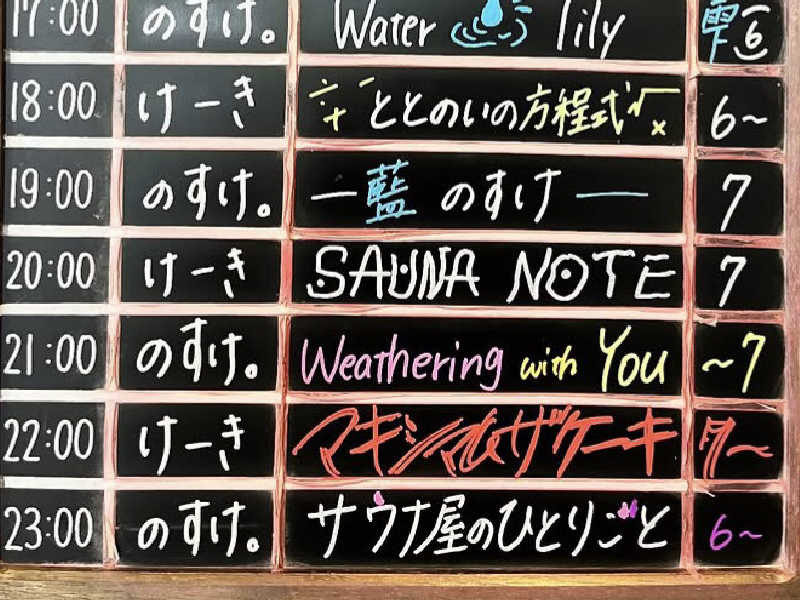 17:00 のすけ。 Water lily 雫 6
18:00 けーき ÷+ ととのいの方程式 √x 6~
19:00 のすけ。 ー藍 のすけー 7
20:00 けーき SAUNA NOTE 7
21:00 のすけ。 Weathering with You ~7
22:00 けーき マキシマムザケーキ 7~
23:00 のすけ。 サウナ屋のひとりごと 6~